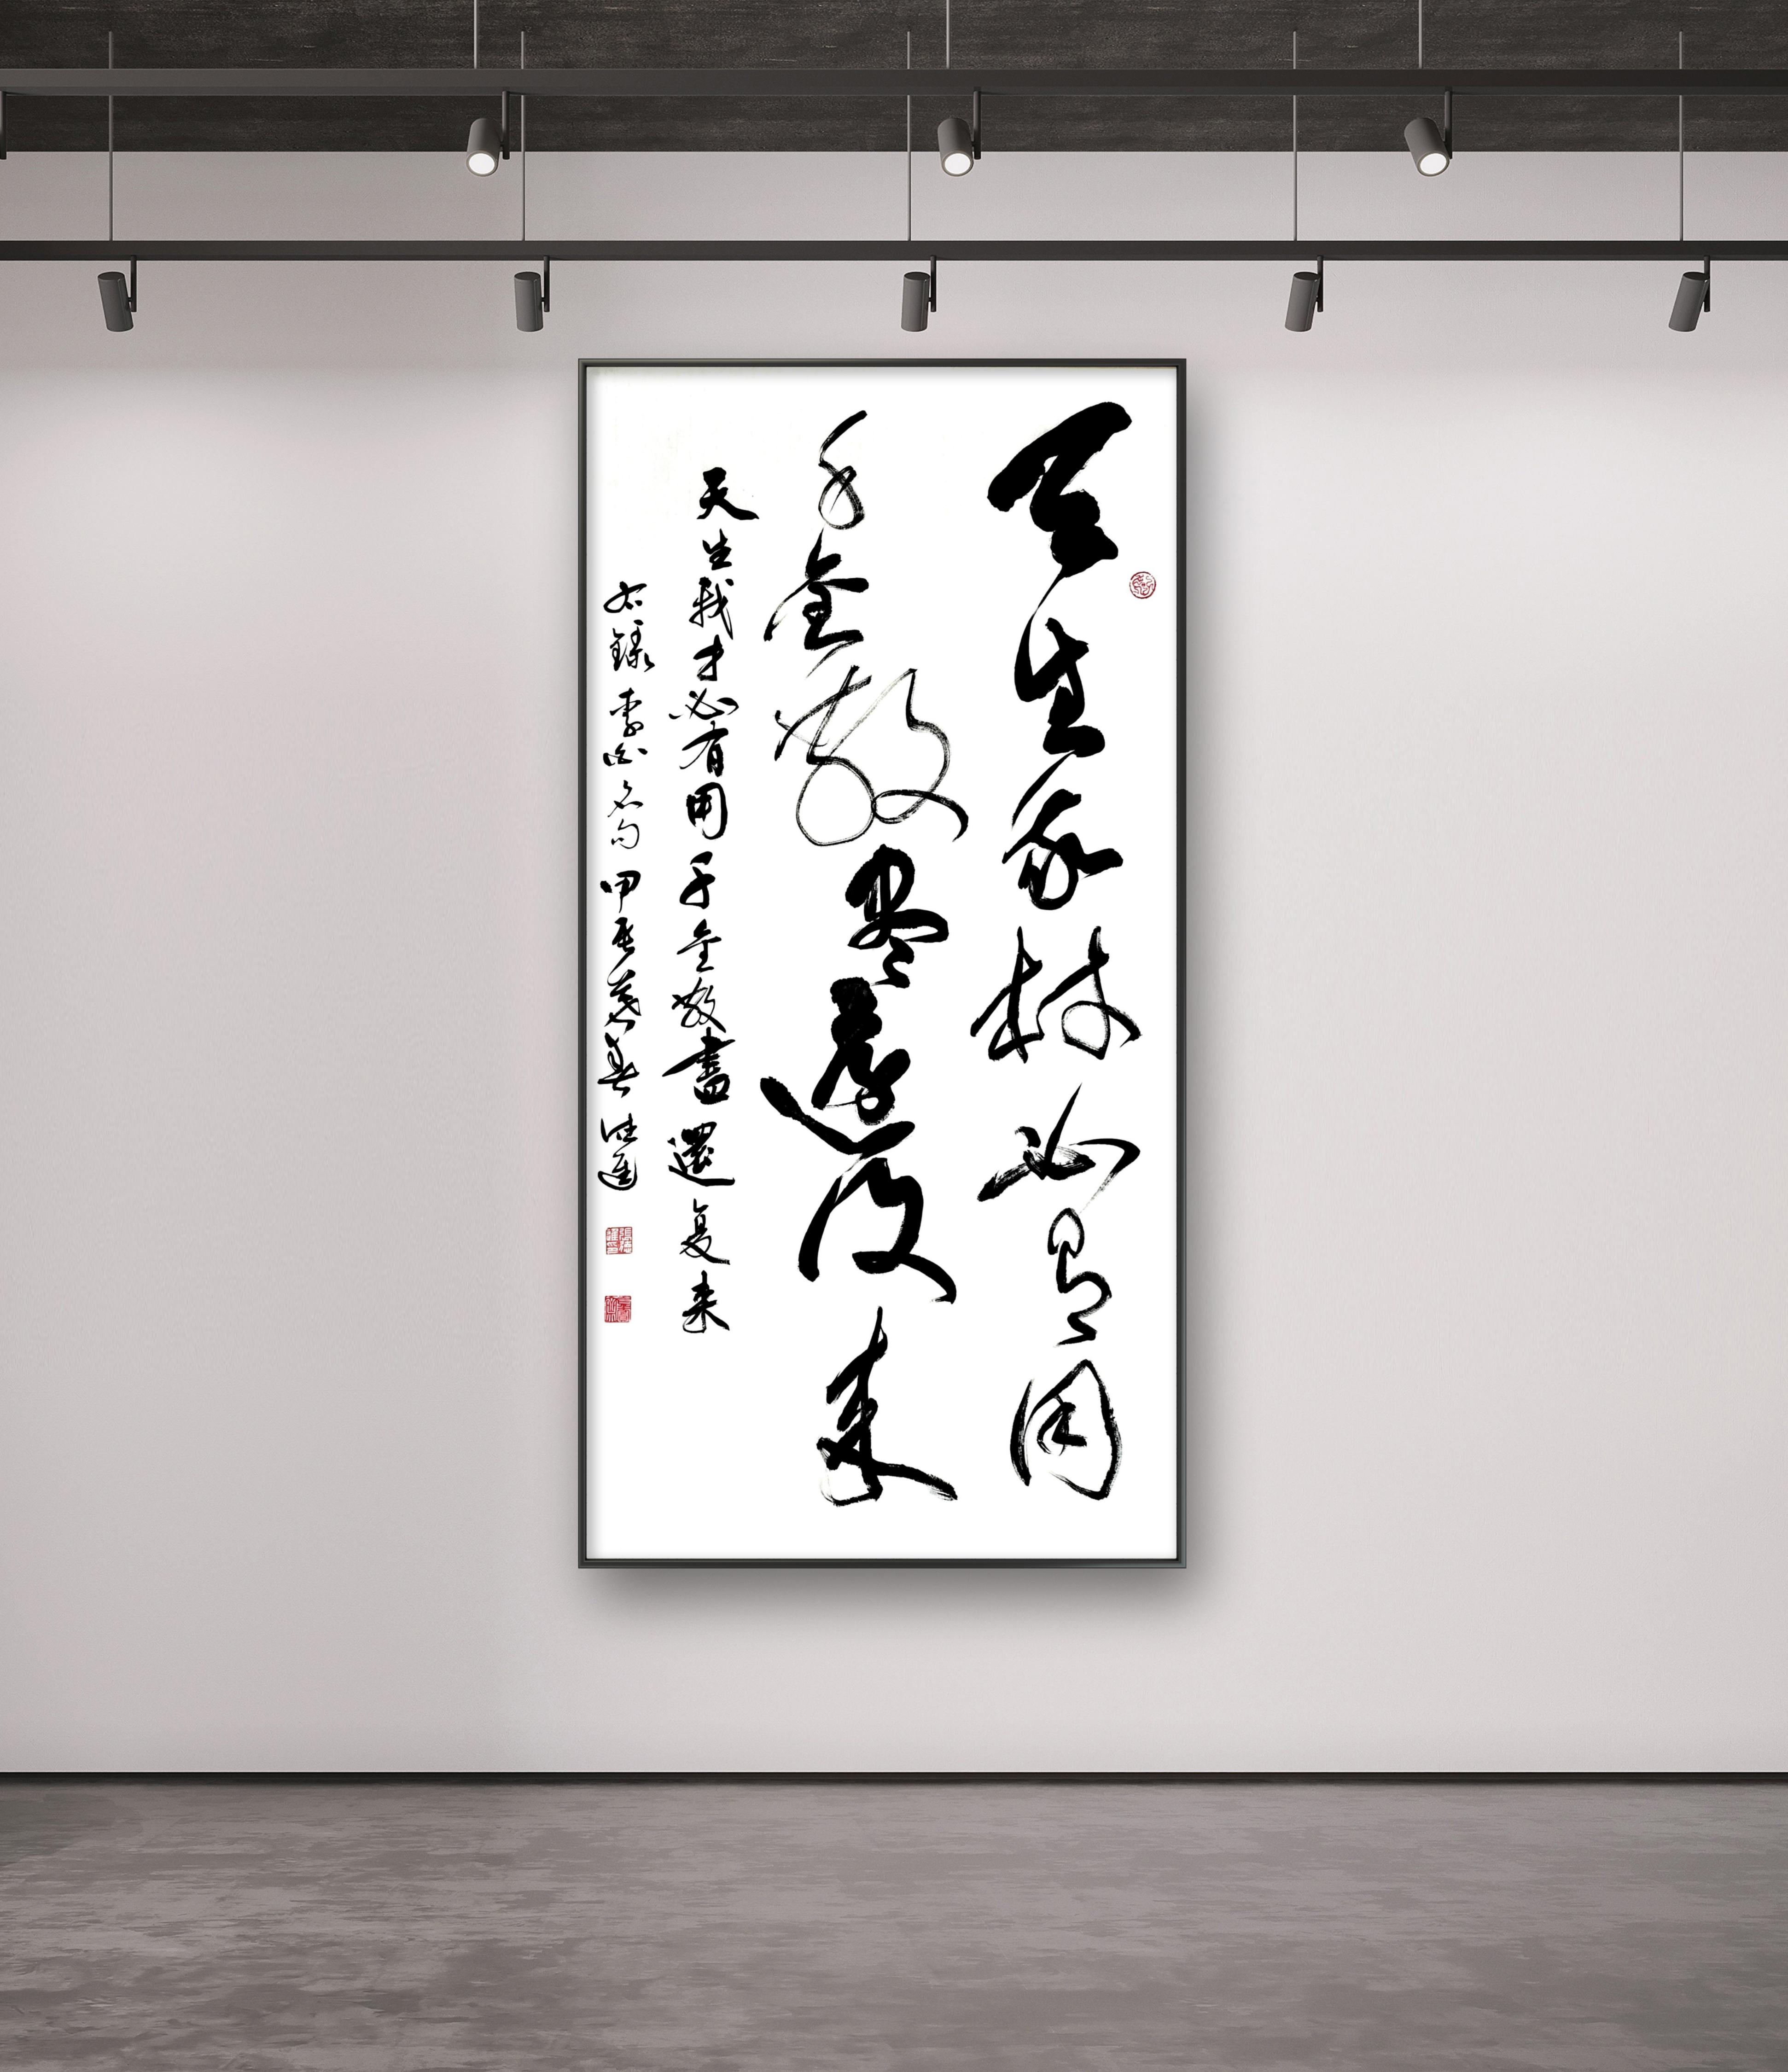 天生我材必有用
千金散尽還復来
天生我才必有用千金散盡還复来
右録李白名句甲辰暮春